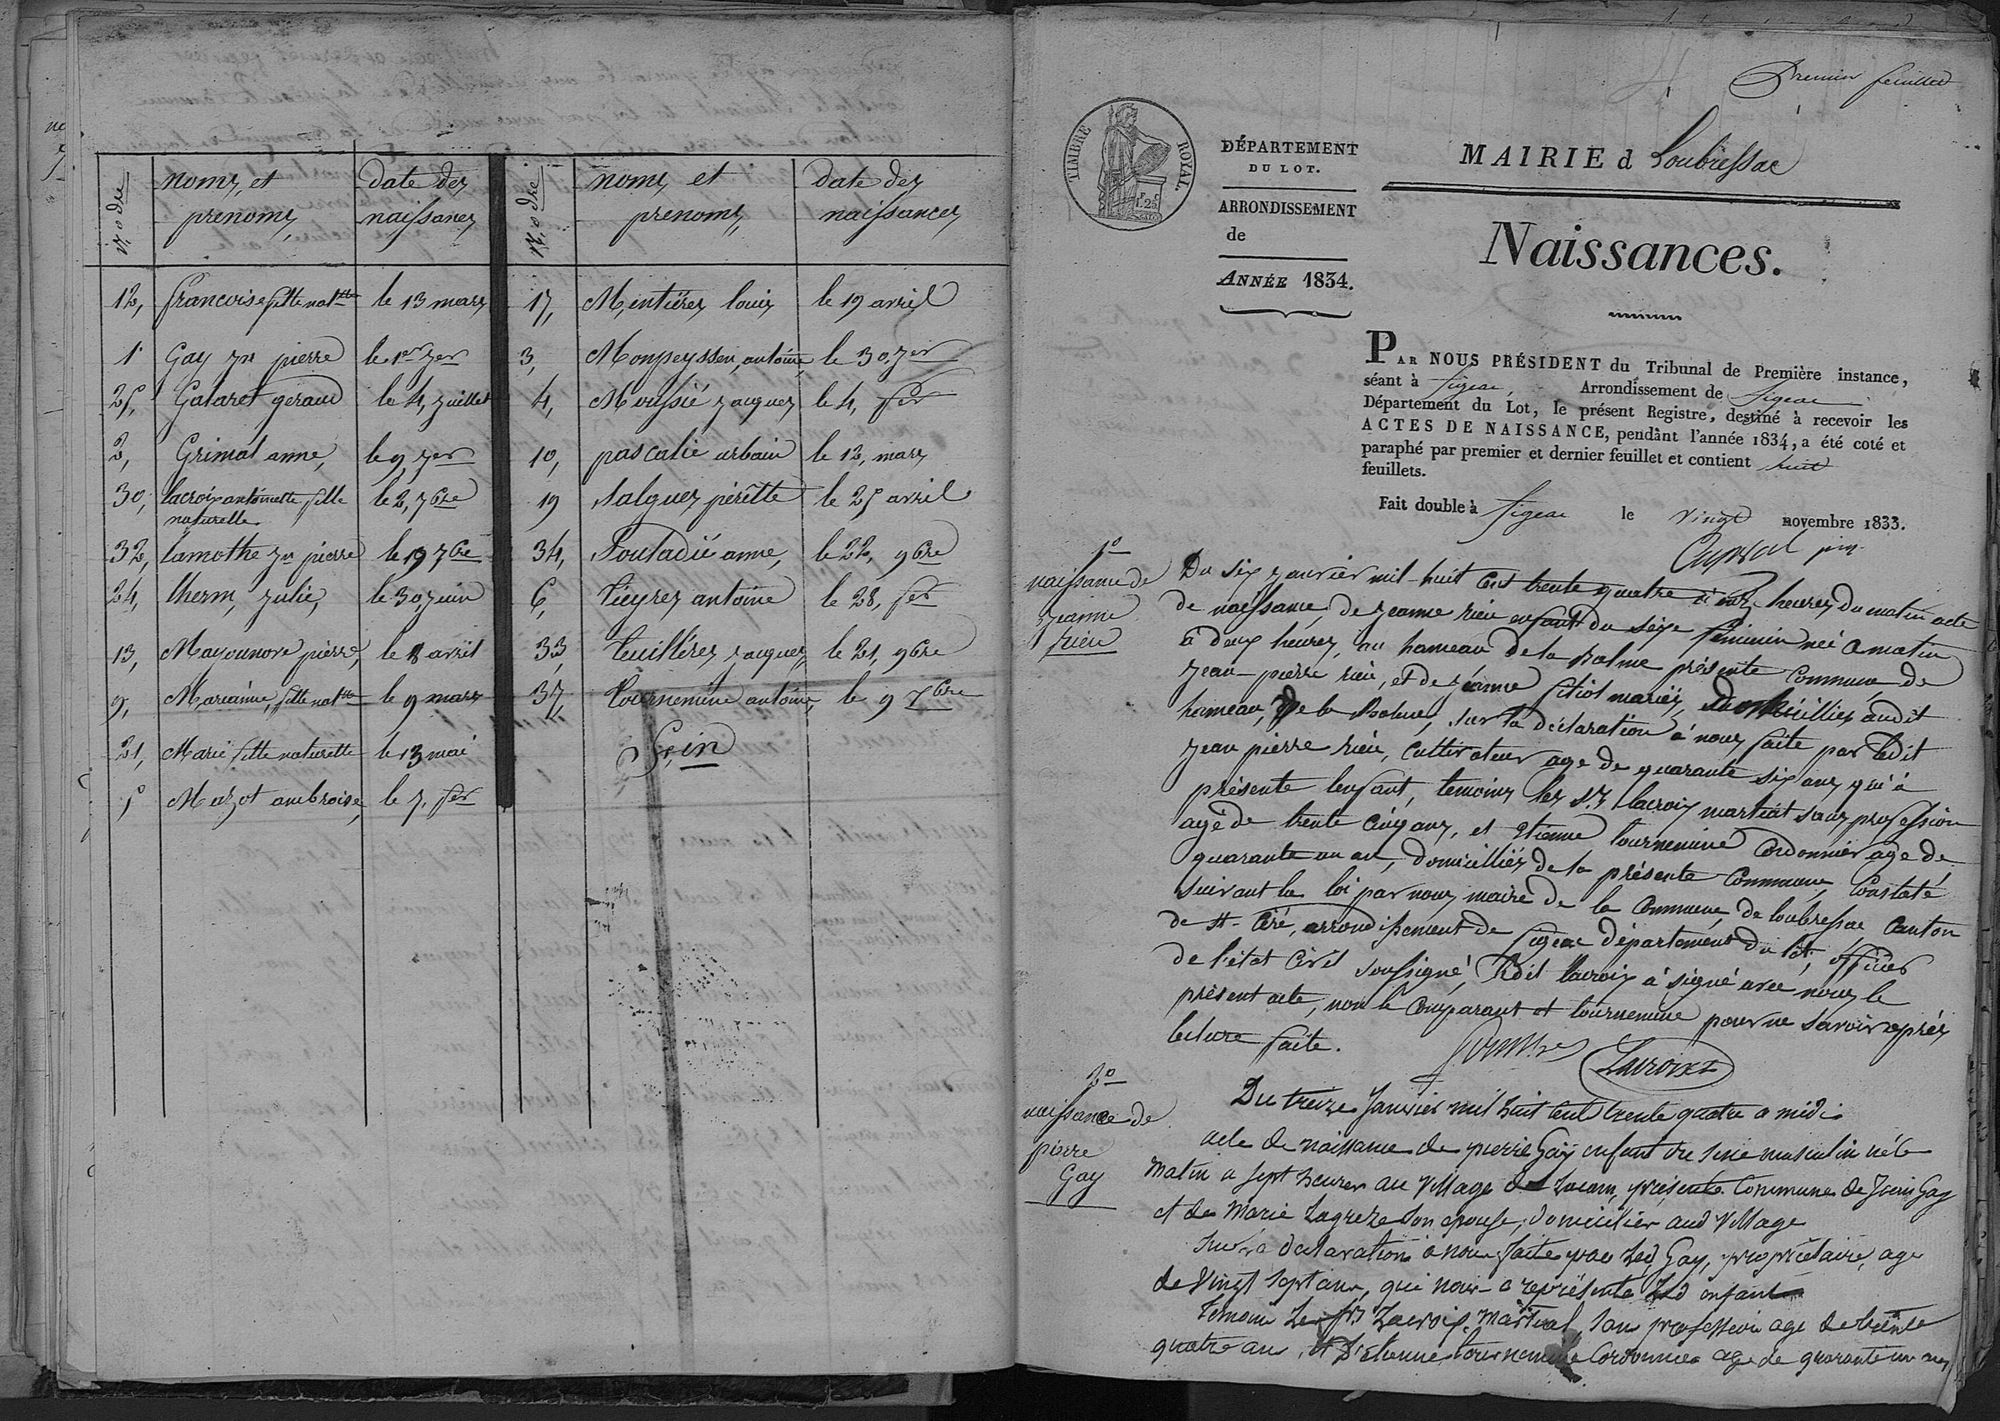 N.o dre
noms, et
prenoms,
date des
naissances
12, francoise fille natlle le 13 mars
1 Gay jn pierre le 1er jer
25, Gataret geraud le 4, juillet
2, Grimal anne, le 9, jer
30, lacroix antoinette fille le 2, 7bre
naturelle
32, lamothe jn pierre le 19 7bre
24, therm, julie, le 30, juin
13, Mayounove pierre, le 8 avril
9, Marianne, fille natlle le 9 mars
21, Marie fille naturelle le 13 mai
5 Mazot ambroise, le 7, fer
N.o dre
noms et
prenoms,
date des
naissances
17, Mentières louis le 19 avril
3, Monpeyssen, antoine, le 30, jer
4, Moussié jacques le 4, fer
10, pascalie urbain le 12, mars
19 Salgues perètte le 25 avril
34, Soutadié anne, le 22, 9bre
6, tieyres antoine le 28, fer
33, teuillères jacques, le 21, 9bre
37, tournemine antoine, le 9 Xbre
fin
Premier feuillet
TIMBRE ROYAL.
DÉPARTEMENT
DU LOT.
ARRONDISSEMENT
de
ANNÉE 1834.
MAIRIE d Loubressac
Naissances.
PAR NOUS PRÉSIDENT du Tribunal de Première instance,
séant à figeac, Arrondissement de figeac
Département du Lot, le présent Registre, destiné à recevoir les
ACTES DE NAISSANCE, pendant l'année 1834, a été coté et
paraphé par premier et dernier feuillet et contient huit
feuillets.
Fait double à figeac le vingt novembre 1833.
1o
naissance de
jeanne
rieu
Du six janvier mil-huit cent trente quatre à heures du matin acte
de naissance, de jeanne rieu enfant du sexe feminin née ce matin
à deux heures, au hameau de la Balme présente commune, de
jean-pierre rieu, et de jeanne filiol mariés, domicillies audit
hameau, de la Balme, sur la déclaration à nous faite par ledit
jean pierre rieu, cultivateur age de quarante six ans qui à
présente lenfant, temoins les s.rs lacroix martial sans profession
agé de trente cinq ans, et etienne tournemine cordonnier age de
quarante un an, domicilliés de la présente commune, Constaté
suivant la loi par nous, maire de la commune, de loubressac canton
de St-Céré, arrondissement de figeac département du lot, officier
de létat civil soussigné, ledit lacroix à signé avec nous le
présent acte, non le comparant et tournemine pour ne savoir après
lecture faite.
Lacroix
2o
naissance de
pierre
Gay
Du treize janvier mil huit cent trente quatre a midi
acte de naissance de pierre Gay enfant du sexe masculin né le
matin a sept heures au village de Lacam, présente Commune de Gay
et de Marie Lagreze son epouse, domicilier aud village
sur la declaration à nous faite par led Gay, propriétaire, age
de vingt sept ans, qui nous a représenté led enfant
temoin les srs Lacroix martial, sans profession age de trente
quatre ans, et Etienne tournemine Cordonnier age de quarante un ans